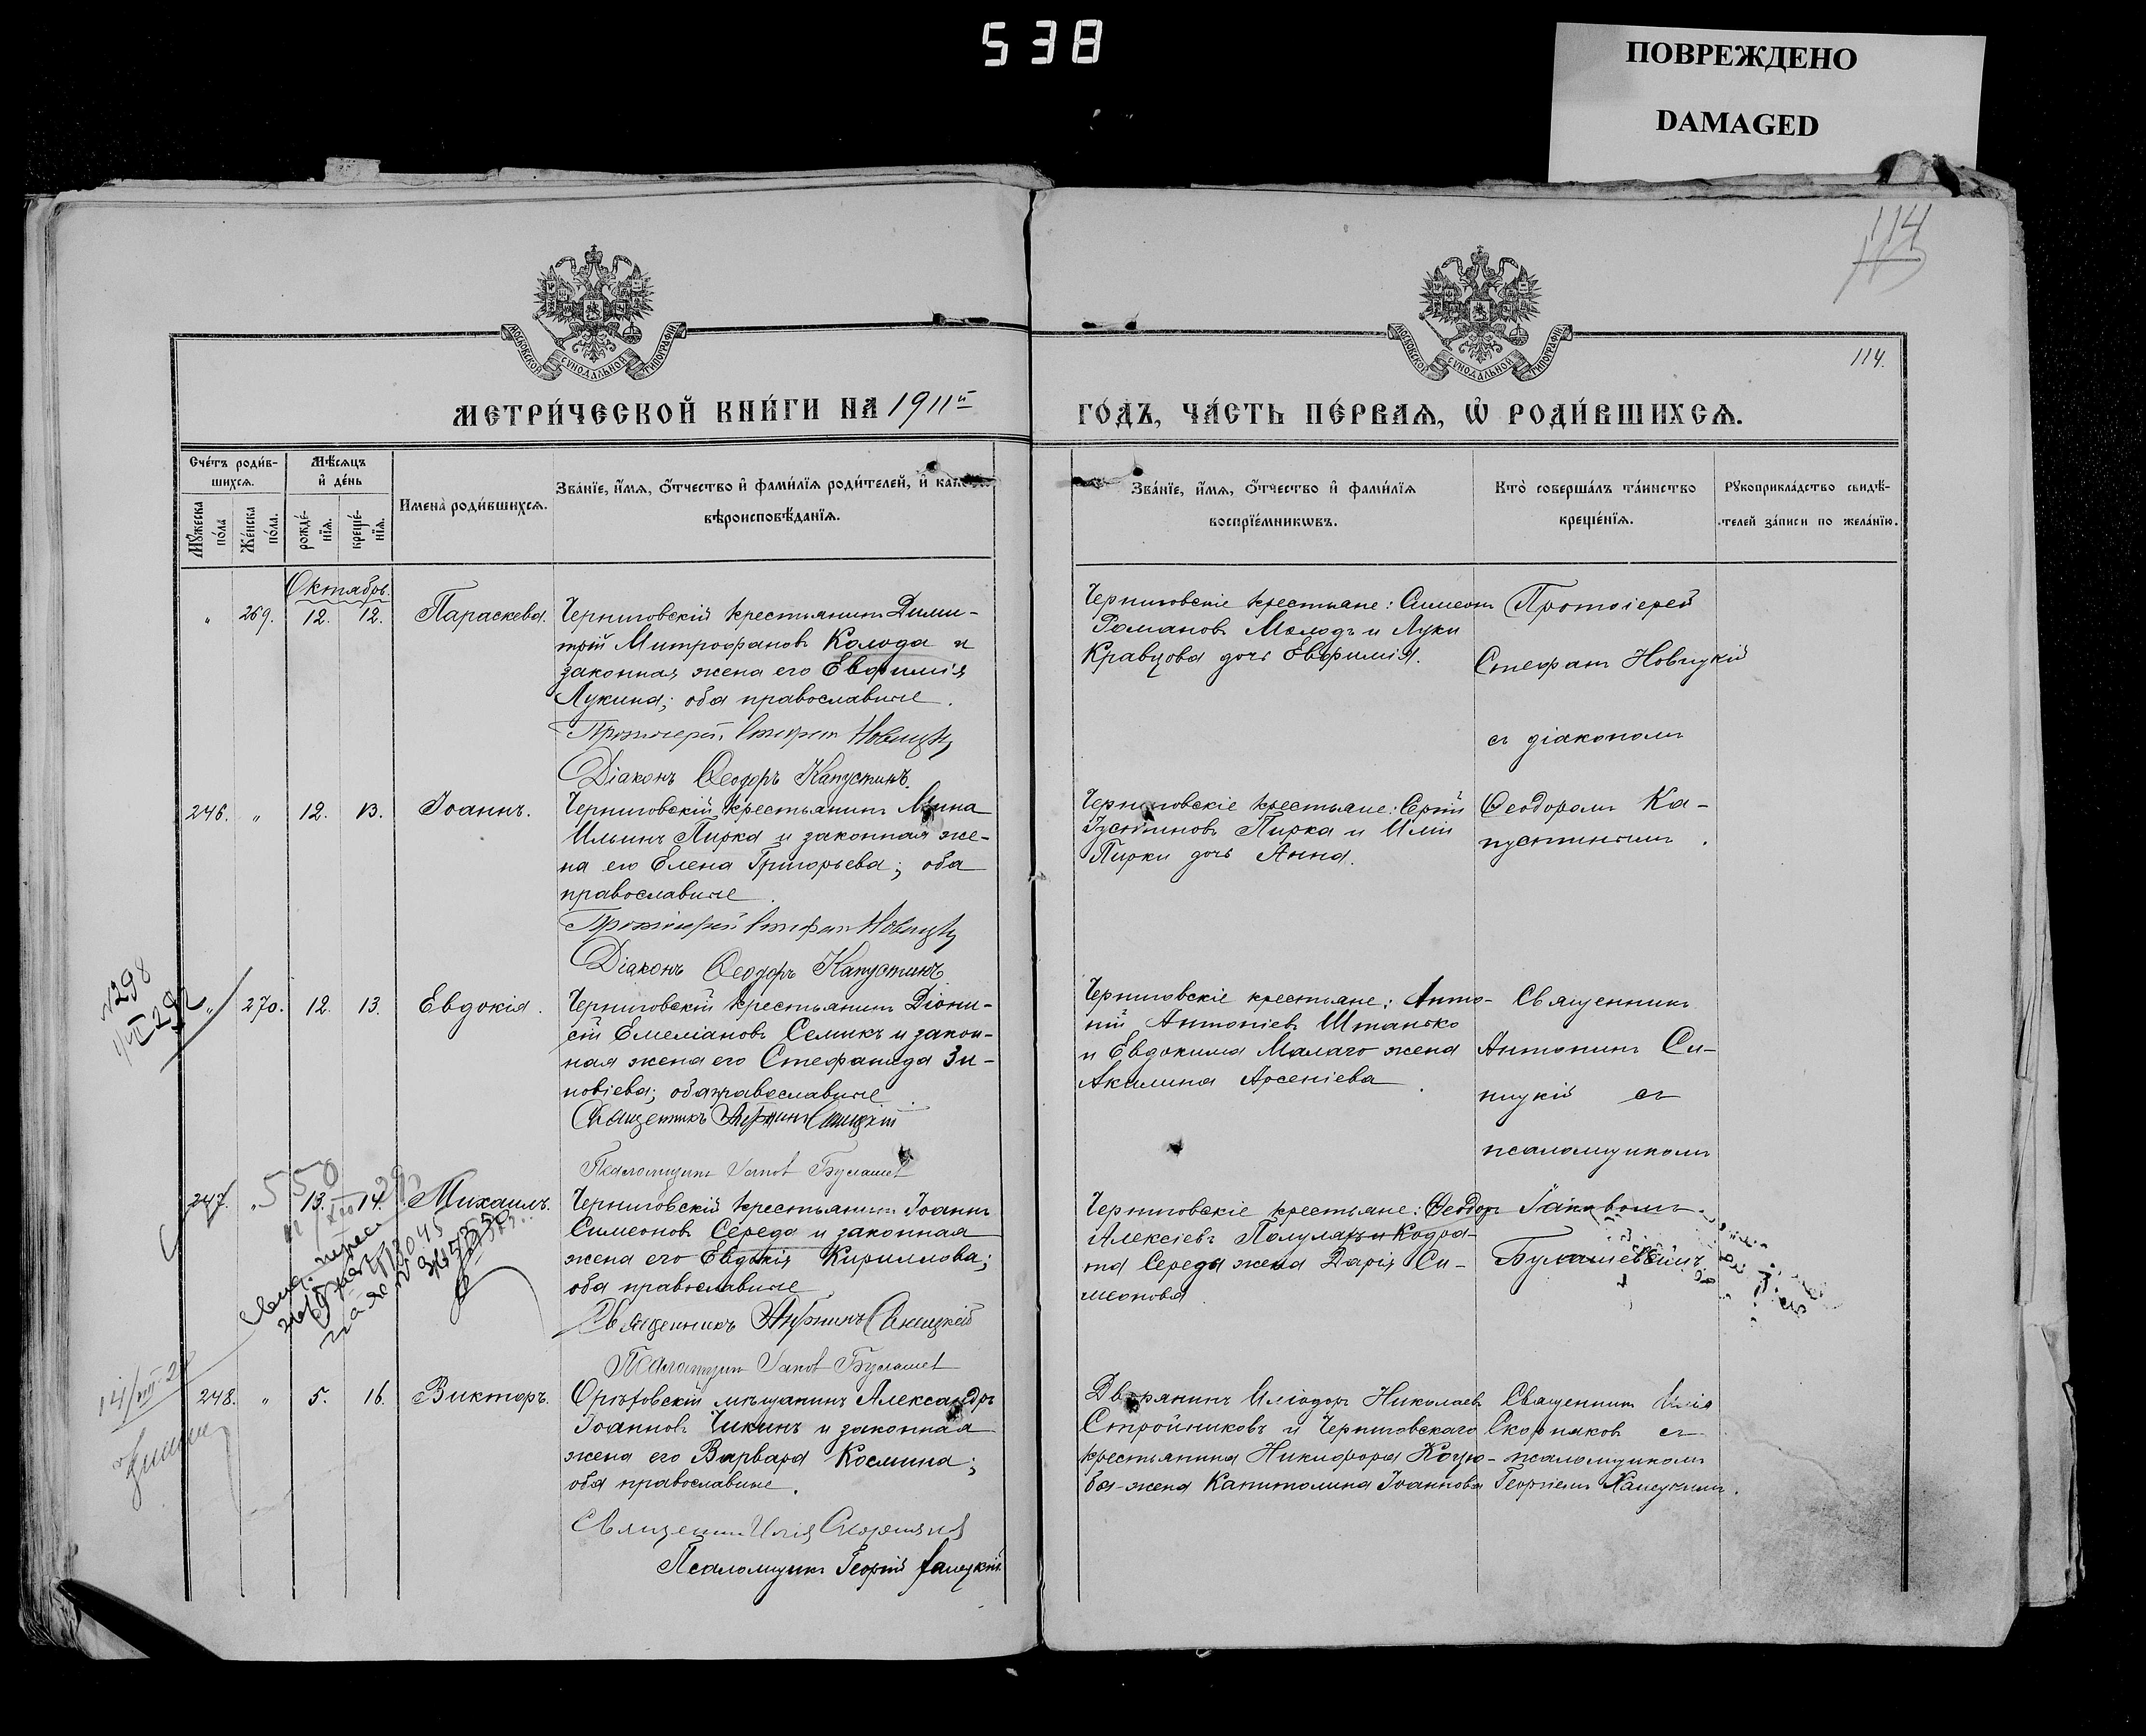 538
ПОВРЕЖДЕНО
DAMAGED
114
114.
МОСКОВСКОЙ СѴНОДАЛЬНОЙ ТИПОГРАФІИ
МОСКОВСКОЙ СѴНОДАЛЬНОЙ ТИПОГРАФІИ
МЕТРИ́ЧЕСКОЙ КНИ́ГИ НА 1911й
ГО́ДЪ, ЧА́СТЬ ПЕ́РВАѦ, Ѡ҆ РОДИ́ВШИХСѦ.
Сче́тъ роди́в-
шихсѧ.
Мꙋ́жеска по́ла
Же́нска по́ла.
Мѣ́сѧцъ
и҆ де́нь
рожде́-нїѧ.
креще́-нїѧ.
И҆мена̀ роди́вшихсѧ.
Зва́нїе, и҆́мѧ, ѻ҆́тчество и҆ фами́лїѧ роди́телей, и҆
вѣроисповѣ́данїѧ.
Зва́нїе, и҆́мѧ, ѻ҆́тчество и҆ фами́лїѧ
воспрїе́мникѡвъ.
Кто̀ соверша́лъ та́инство
креще́нїѧ.
Рꙋкоприкла́дство свидѣ́-
телей за́писи по жела́нїю.
Октябрь.
" 269. 12. 12. Параскева.
Черниговскій крестьянинъ Дими-
трій Митрофановъ Колода и
законная жена его Евфимія
Лукина; оба православные.
Протоіерей Стефанъ Новицкій
Діаконъ Ѳеодоръ Капустинъ.
Черниговскіе крестьяне: Симеонъ
Романовъ Молодъ и Луки
Кравцова дочь Евфимія.
Протоіерей
Стефанъ Новицкій
съ діакономъ
246. " 12. 13. Іоаннъ.
Черниговскій крестьянинъ Мина
Ильинъ Пирка и законная же-
на его Елена Григорьева; оба
православные.
Протоіерей Стефанъ Новицкій
Діаконъ Ѳеодоръ Капустинъ
Черниговскіе крестьяне: Сергій
Іустиновъ Пирка и Иліи
Пирки дочь Анна.
Ѳеодоромъ Ка-
пустинымъ.
" 270. 12. 13. Евдокія.
Черниговскій крестьянинъ Діони-
сій Емеліановъ Семикъ и закон-
ная жена его Стефанида Зи-
новіева; оба православные.
Священникъ Антонинъ Синицкій
Псаломщикъ Іаковъ
Черниговскіе крестьяне: Анто-
ній Антоніевъ Штанько
и Евдокима Малаго жена
Акилина Арсеніева.
Священникъ
Антонинъ Си-
ницкій съ
псаломщикомъ
247. " 13. 14. Михаилъ.
Черниговскій крестьянинъ Іоаннъ
Симеоновъ Середа и законная
жена его Евдокія Кириллова;
оба православные
Священникъ Антонинъ Синицкій
Псаломщикъ Іаковъ
Черниговскіе крестьяне: Ѳеодоръ
Алексіевъ Полулякъ и Кодра-
та Середы жена Дарія Си-
меонова.
Іаковомъ
248. " 5. 16. Викторъ.
Орѣховскій мѣщанинъ Александръ
Іоанновъ Чикинъ и законная
жена его Варвара Космина;
оба православные.
Священникъ Илія Скорняковъ
Псаломщикъ Георгій
Дворянинъ Иліодоръ Николаевъ
Стройниковъ и Черниговскаго
крестьянина Никифора Коцю-
ба жена Капитолина Іоаннова
Священникъ Илія
Скорняковъ съ
псаломщикомъ
Георгіемъ